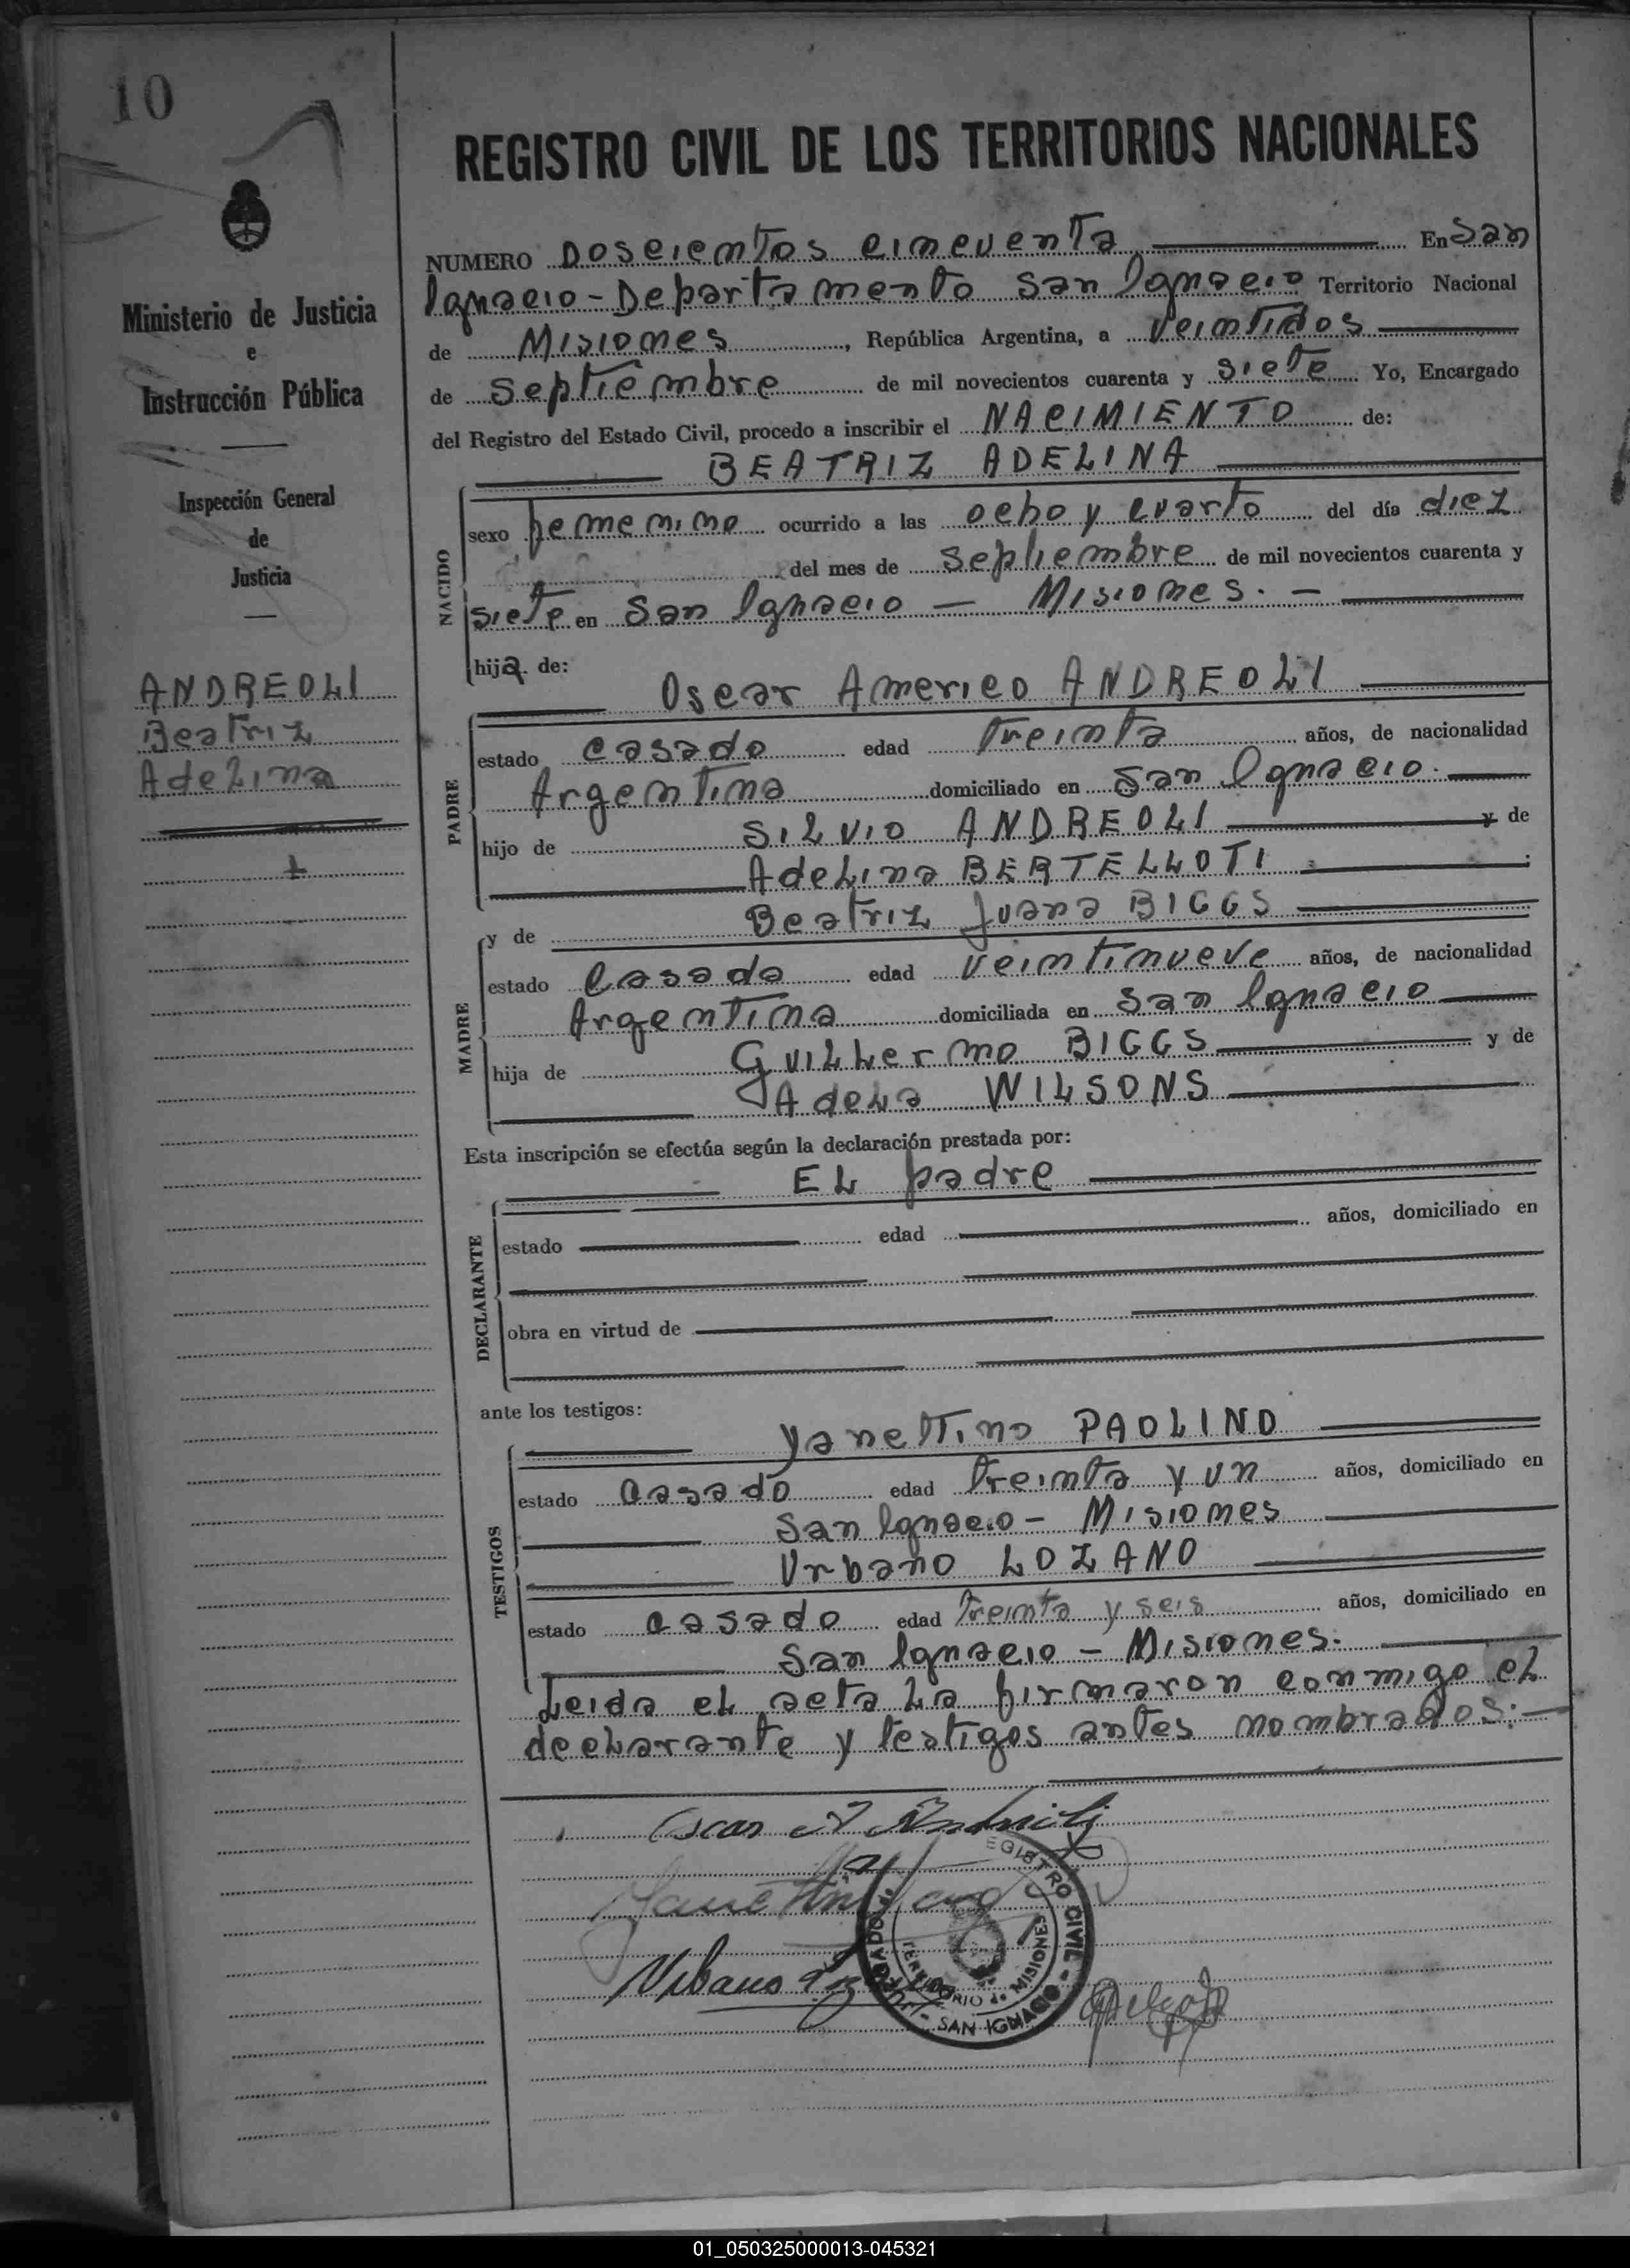 10
REGISTRO CIVIL DE LOS TERRITORIOS NACIONALES
Ministerio de Justicia
e
Instrucción Pública
Inspección General
de
Justicia
ANDREOLI
Beatriz
Adelina
NUMERO Doscientos cincuenta En San
Ignacio - Departamento San Ignacio Territorio Nacional
de Misiones, República Argentina, a veintidos
de septiembre de mil novecientos cuarenta y siete Yo, Encargado
del Registro del Estado Civil, procedo a inscribir el NACIMIENTO de:
BEATRIZ ADELINA
NACIDO
sexo femenino ocurrido a las ocho y cuarto del día diez
del mes de septiembre de mil novecientos cuarenta y
siete en San Ignacio - Misiones. -
hija de:
Oscar Americo ANDREOLI
PADRE
estado casado edad treinta años, de nacionalidad
Argentina domiciliado en San Ignacio.
hijo de SILVIO ANDREOLI y de
Adelina BERTELLOTI
y de Beatriz Juana BIGGS
MADRE
estado casada edad veintinueve años, de nacionalidad
Argentina domiciliada en San Ignacio
hija de Guillermo BIGGS y de
Adela WILSONS
Esta inscripción se efectúa según la declaración prestada por:
EL padre
DECLARANTE
estado edad años, domiciliado en
obra en virtud de
ante los testigos:
Yanettino PAOLINO
TESTIGOS
estado casado edad treinta y un años, domiciliado en
San Ignacio - Misiones
Urbano LOZANO
estado casado edad treinta y seis años, domiciliado en
San Ignacio - Misiones.
Leida el acta la firmaron conmigo el
declarante y testigos antes nombrados:-
Oscar A Andreoli
Urbano Lozano
REGISTRO CIVIL - SAN IGNACIO -
TERRITORIO de MISIONES
01_050325000013-045321